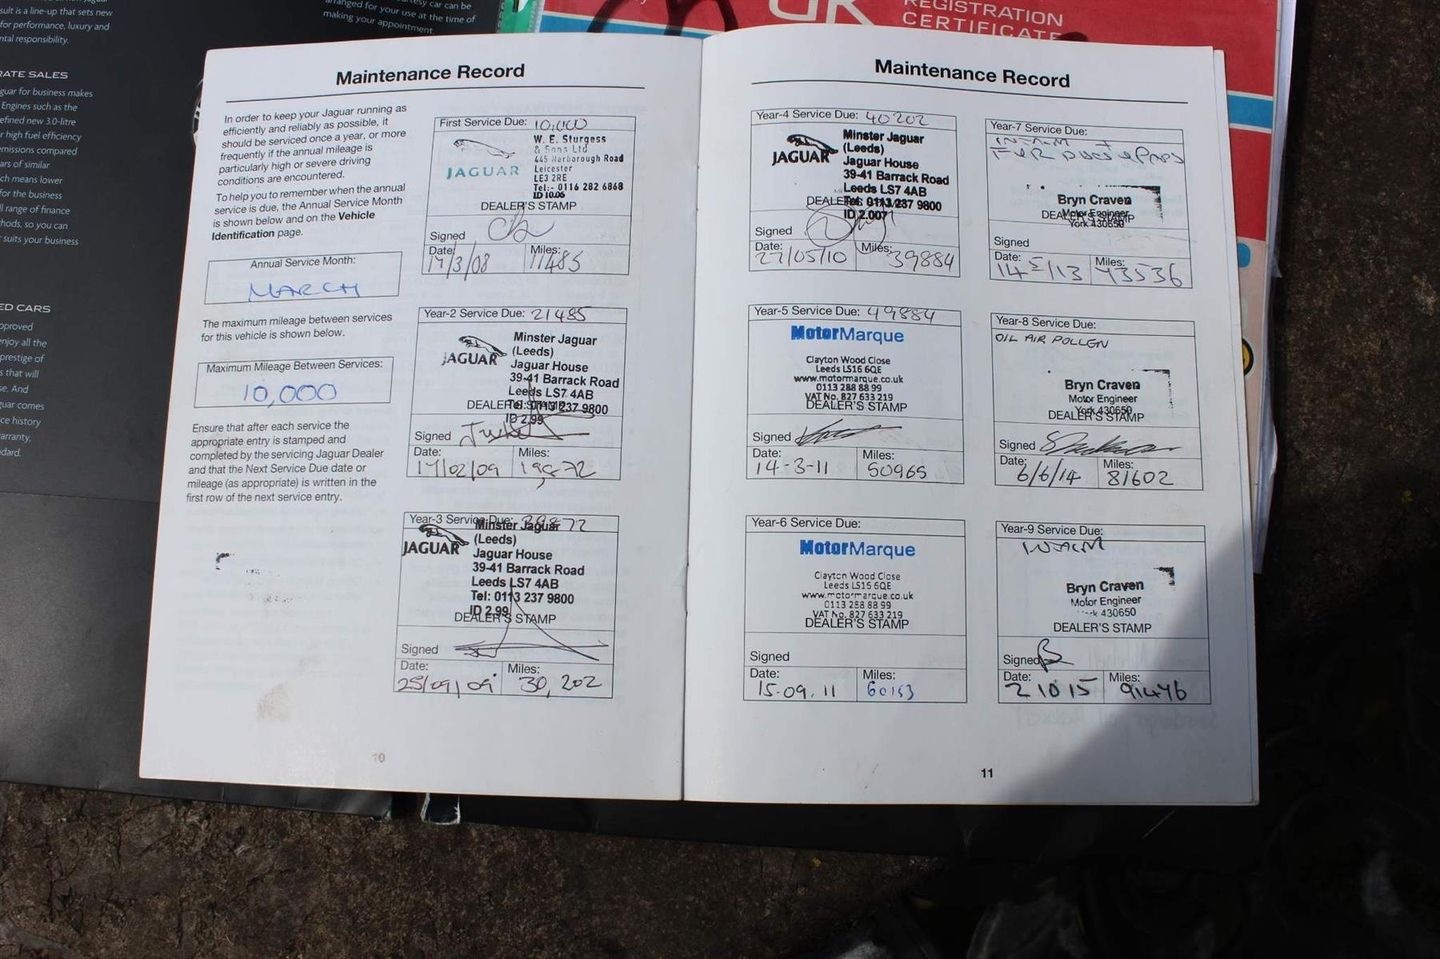 sult is a line-up that sets new
for performance, luxury and
ntal responsibility.
RATE SALES
guar for business makes
Engines such as the
efined new 3.0-litre
r high fuel efficiency
emissions compared
ars of similar
ch means lower
for the business
ll range of finance
hods, so you can
suits your business
ED CARS
pproved
enjoy all the
prestige of
s that will
se. And
guar comes
ce history
arranty,
dard.
tesy car can be
arranged for your use at the time of
making your appointment.
UK
REGISTRATION
CERTIFICATE
Maintenance Record
In order to keep your Jaguar running as
efficiently and reliably as possible, it
should be serviced once a year, or more
frequently if the annual mileage is
particularly high or severe driving
conditions are encountered.
To help you to remember when the annual
service is due, the Annual Service Month
is shown below and on the Vehicle
Identification page.
Annual Service Month:
MARCH
The maximum mileage between services
for this vehicle is shown below.
Maximum Mileage Between Services:
10,000
Ensure that after each service the
appropriate entry is stamped and
completed by the servicing Jaguar Dealer
and that the Next Service Due date or
mileage (as appropriate) is written in the
first row of the next service entry.
First Service Due: 10,000
JAGUAR
W. E. Sturgess
& Sons Ltd
445 Narborough Road
Leicester
LE3 2RE
Tel:- 0116 282 6868
ID 10.06
DEALER'S STAMP
Signed
Date: Miles:
17/3/08 11485
Year-2 Service Due: 21485
JAGUAR
Minster Jaguar
(Leeds)
Jaguar House
39-41 Barrack Road
Leeds LS7 4AB
Tel: 0113 237 9800
ID 2.99
DEALER'S STAMP
Signed
Date: Miles:
17/02/09
Year-3 Service Due:
JAGUAR
Minster Jaguar
(Leeds)
Jaguar House
39-41 Barrack Road
Leeds LS7 4AB
Tel: 0113 237 9800
ID 2.99
DEALER'S STAMP
Signed
Date: Miles:
25/09/09 30,202
10
Maintenance Record
Year-4 Service Due: 40202
JAGUAR
Minster Jaguar
(Leeds)
Jaguar House
39-41 Barrack Road
Leeds LS7 4AB
Tel: 0113 237 9800
ID 2.007
DEALER'S STAMP
Signed
Date: Miles:
27/05/10 39884
Year-5 Service Due: 49884
MotorMarque
Clayton Wood Close
Leeds LS16 6QE
www.motormarque.co.uk
0113 288 88 99
VAT No. 827 633 219
DEALER'S STAMP
Signed
Date: Miles:
14-3-11 50965
Year-6 Service Due:
MotorMarque
Clayton Wood Close
Leeds LS16 6QE
www.motormarque.co.uk
0113 288 88 99
VAT No. 827 633 219
DEALER'S STAMP
Signed
Date: Miles:
15.09.11 60153
Year-7 Service Due:
Bryn Craven
Motor Engineer
York 430650
DEALER'S STAMP
Signed
Date: Miles:
14 5/13 73536
Year-8 Service Due:
OIL AIR POLLEN
Bryn Craven
Motor Engineer
York 430650
DEALER'S STAMP
Signed
Date: Miles:
6/6/14 81602
Year-9 Service Due:
Bryn Craven
Motor Engineer
York 430650
DEALER'S STAMP
Signed
Date: Miles:
2 10 15 91476
11